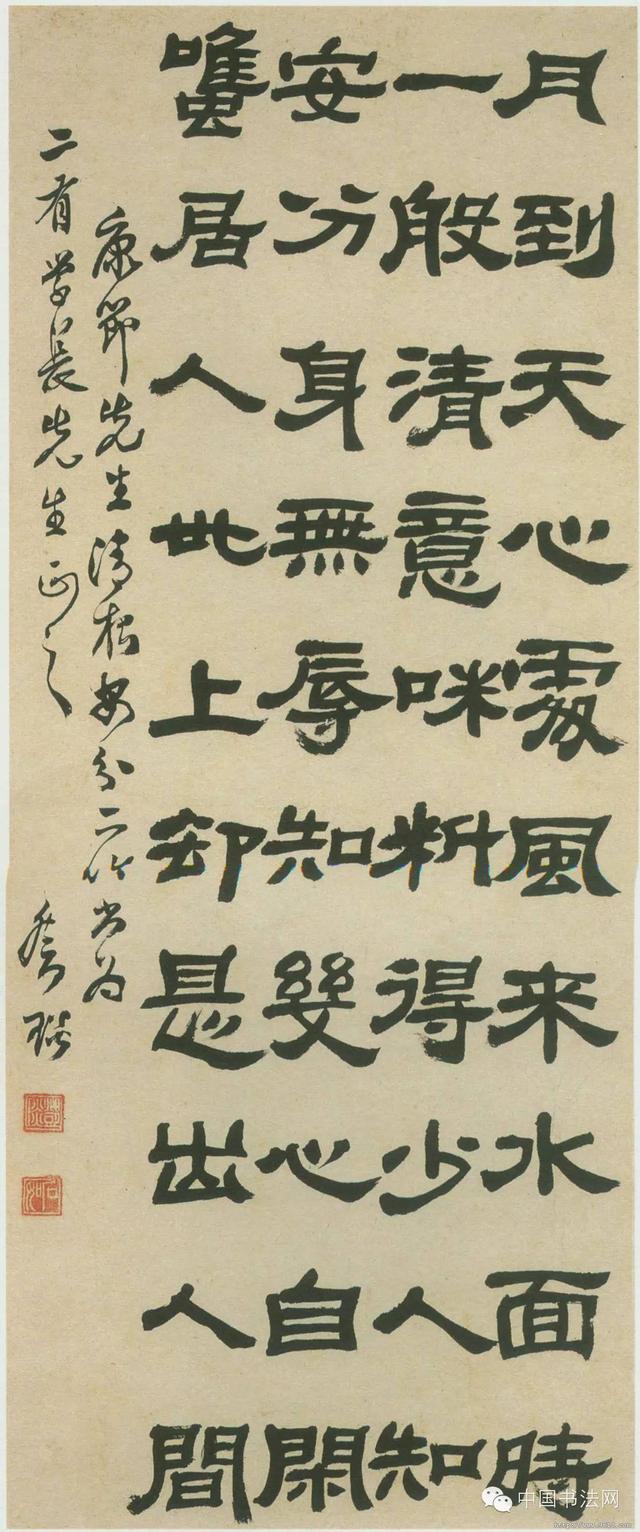 月到天心處風来水面時
一般清意味料得少人知
安分身無辱知幾心自閑
雖居人世上却是出人間
康節先生清夜安分二吟書為
二有學長先生正之
中国书法网